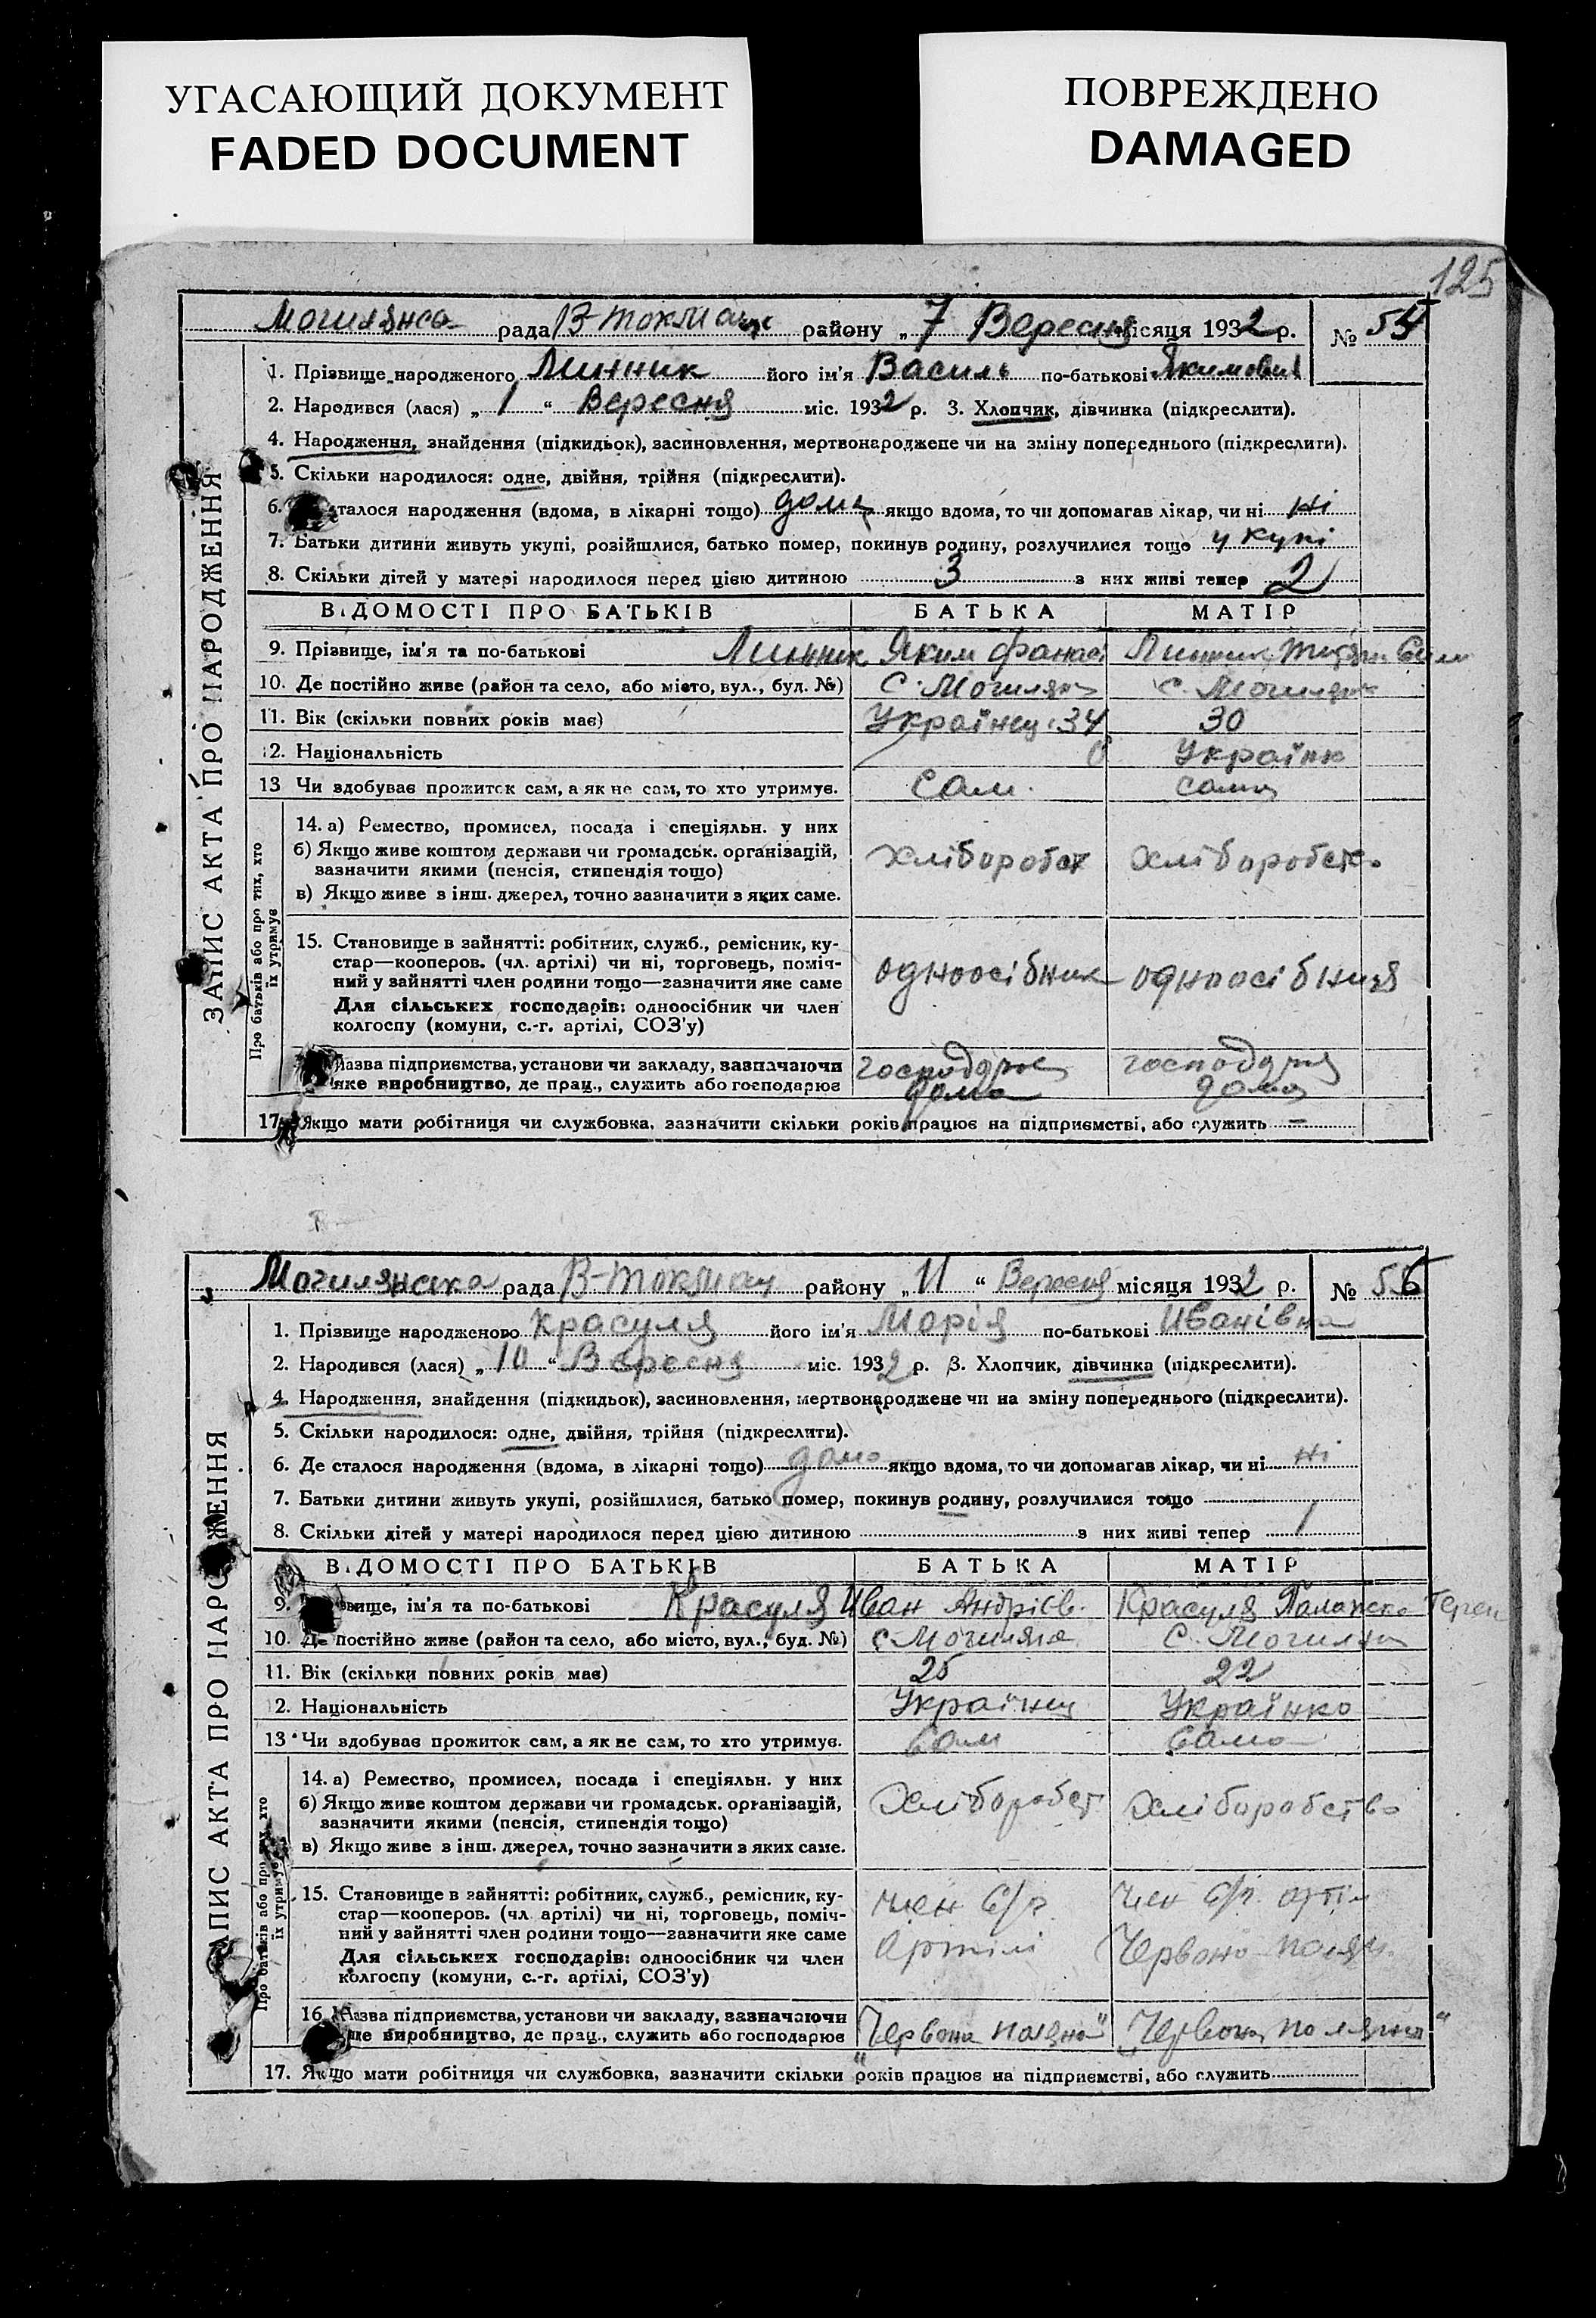 УГАСАЮЩИЙ ДОКУМЕНТ
FADED DOCUMENT
ПОВРЕЖДЕНО
DAMAGED
125
ЗАПИС АКТА ПРО НАРОДЖЕННЯ
рада В-Токмац району „ 7 Вересня місяця 1932 р. № 54
1. Прізвище народженого Линник його ім'я Василь по-батькові Якимович
2. Народився (лася) „ 1 “ Вересня міс. 1932 р. 3. Хлопчик, дівчинка (підкреслити).
4. Народження, знайдення (підкидьок), засиновлення, мертвонароджене чи на зміну попереднього (підкреслити).
5. Скільки народилося: одне, двійня, трійня (підкреслити).
6. талося народження (вдома, в лікарні тощо) дома якщо вдома, то чи допомагав лікар, чи ні ні
7. Батьки дитини живуть укупі, розійшлися, батько помер, покинув родину, розлучилися тощо укупі
8. Скільки дітей у матері народилося перед цією дитиною 3 з них живі тепер 2
ВІДОМОСТІ ПРО БАТЬКІВ БАТЬКА МАТІР
9. Прізвище, ім'я та по-батькові Линник Яким Фанас Линник
10. Де постійно живе (район та село, або місто, вул., буд. №) с. Могиляни с. Могиляни
11. Вік (скільки повних років має) Українец 34 30
12. Національність Українк
13 Чи здобуває прожиток сам, а як не сам, то хто утримує. Сам. сама
Про батьків або про тих, хто їх утримує
14. а) Ремество, промисел, посада і спеціяльн. у них
б) Якщо живе коштом держави чи громадськ. організацій,
зазначити якими (пенсія, стипендія тощо)
хліборобст хліборобство
в) Якщо живе з інш. джерел, точно зазначити з яких саме.
15. Становище в зайнятті: робітник, служб., ремісник, ку-
стар—кооперов. (чл. артілі) чи ні, торговець, поміч-
ний у зайнятті член родини тощо—зазначити яке саме
одноосібник одноосібниця
Для сільських господарів: одноосібник чи член
колгоспу (комуни, с.-г. артілі, СОЗ'у)
Назва підприємства, установи чи закладу, зазначаючи господарює
яке виробництво, де прац., служить або господарює дома дома
17. Якщо мати робітниця чи службовка, зазначити скільки років працює на підприємстві, або служить —
ЗАПИС АКТА ПРО НАРОДЖЕННЯ
Могилянска рада В-Токмац району „ 11 “ Вересня місяця 1932 р. № 55
1. Прізвище народженого Красуля його ім'я Марія по-батькові Иванівна
2. Народився (лася) „ 10 “ Вересня міс. 1932 р. 3. Хлопчик, дівчинка (підкреслити).
4. Народження, знайдення (підкидьок), засиновлення, мертвонароджене чи на зміну попереднього (підкреслити).
5. Скільки народилося: одне, двійня, трійня (підкреслити).
6. Де сталося народження (вдома, в лікарні тощо) дома якщо вдома, то чи допомагав лікар, чи ні ні
7. Батьки дитини живуть укупі, розійшлися, батько помер, покинув родину, розлучилися тощо
8. Скільки дітей у матері народилося перед цією дитиною з них живі тепер 1
ВІДОМОСТІ ПРО БАТЬКІВ БАТЬКА МАТІР
9. вище, ім'я та по-батькові Красуля Иван Андріев. Красуля Терен
10. Де постійно живе (район та село, або місто, вул., буд. №) с Могиляна с. Могиляни
11. Вік (скільки повних років має) 25 22
12. Національність Українец Українка
13 Чи здобуває прожиток сам, а як не сам, то хто утримує. Сам Сама
Про батьків або про тих, хто їх утримує
14. а) Ремество, промисел, посада і спеціяльн. у них
б) Якщо живе коштом держави чи громадськ. організацій,
зазначити якими (пенсія, стипендія тощо)
Хліборобст хліборобство
в) Якщо живе з інш. джерел, точно зазначити з яких саме.
15. Становище в зайнятті: робітник, служб., ремісник, ку-
стар—кооперов. (чл. артілі) чи ні, торговець, поміч-
ний у зайнятті член родини тощо—зазначити яке саме
член С/г. член С/г. арті
Для сільських господарів: одноосібник чи член
колгоспу (комуни, с.-г. артілі, СОЗ'у)
Артілі Червона полян.
16 Назва підприємства, установи чи закладу, зазначаючи
ще виробництво, де прац., служить або господарює „Червона поляна“ „Червона поляна“
17. Якщо мати робітниця чи службовка, зазначити скільки років працює на підприємстві, або служить